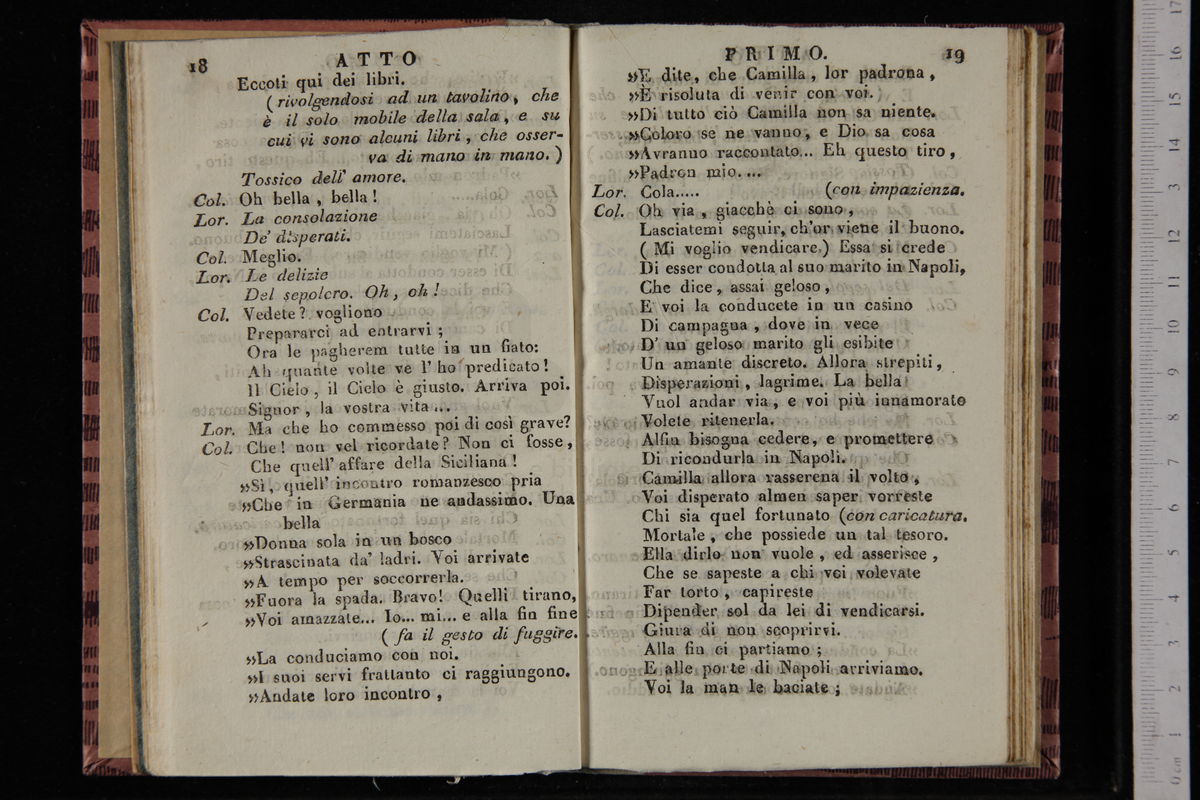 18 ATTO
Eccoti qui dei libri.
( rivolgendosi ad un tavolino, che
è il solo mobile della sala, e su
cui vi sono alcuni libri, che osser-
va di mano in mano. )
Tossico dell' amore.
Col. Oh bella, bella!
Lor. La consolazione
De' disperati.
Col. Meglio.
Lor. Le delizie
Del sepolcro. Oh, oh!
Col. Vedete? vogliono
Prepararci ad entrarvi;
Ora le pagherem tutte in un fiato:
Ah quante volte ve l' ho predicato!
Il Cielo, il Cielo è giusto. Arriva poi.
Signor, la vostra vita...
Lor. Ma che ho commesso poi di così grave?
Col. Che! non vel ricordate? Non ci fosse,
Che quell' affare della Siciliana!
»Sì, quell' incontro romanzesco pria
»Che in Germania ne andassimo. Una
bella
»Donna sola in un bosco
»Strascinata da' ladri. Voi arrivate
»A tempo per soccorrerla.
»Fuora la spada. Bravo! Quelli tirano,
»Voi amazzate... Io... mi... e alla fin fine
( fa il gesto di fuggire.
»La conduciamo con noi.
»I suoi servi frattanto ci raggiungono.
»Andate loro incontro,
PRIMO. 19
»E dite, che Camilla, lor padrona,
»È risoluta di venir con voi.
»Di tutto ciò Camilla non sa niente.
»Coloro se ne vanno, e Dio sa cosa
»Avranno raccontato... Eh questo tiro,
»Padron mio....
Lor. Cola..... (con impazienza.
Col. Oh via, giacchè ci sono,
Lasciatemi seguir, ch'or viene il buono.
( Mi voglio vendicare.) Essa si crede
Di esser condotta al suo marito in Napoli,
Che dice, assai geloso,
E voi la conducete in un casino
Di campagna, dove in vece
D' un geloso marito gli esibite
Un amante discreto. Allora strepiti,
Disperazioni, lagrime. La bella
Vuol andar via, e voi più innamorato
Volete ritenerla.
Alfin bisogna cedere, e promettere
Di ricondurla in Napoli.
Camilla allora rasserena il volto,
Voi disperato almen saper vorreste
Chi sia quel fortunato (con caricatura.
Mortale, che possiede un tal tesoro.
Ella dirlo non vuole, ed asserisce,
Che se sapeste a chi voi volevate
Far torto, capireste
Dipender sol da lei di vendicarsi.
Giura di non scoprirvi.
Alla fin ci partiamo;
E alle porte di Napoli arriviamo.
Voi la man le baciate;